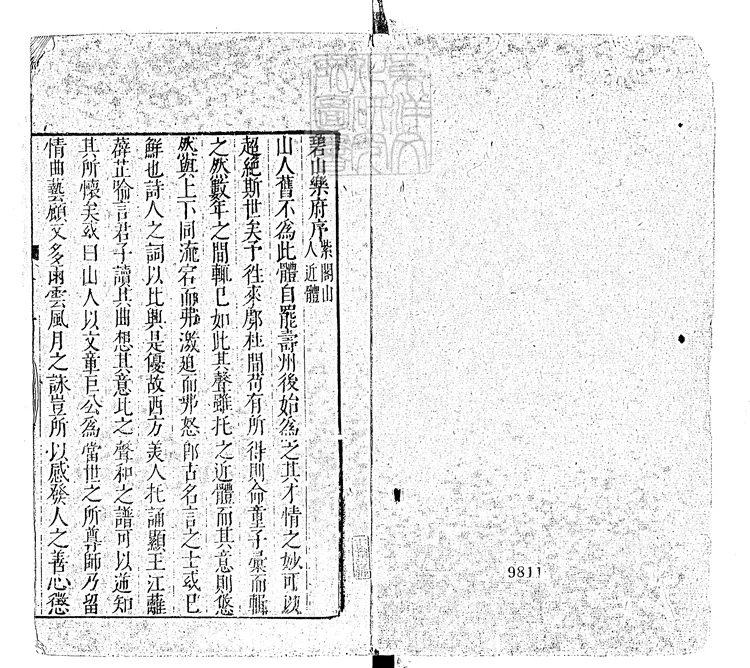 碧山樂府序 紫閣山人近體
山人舊不為此體自罷壽州後始為之其才情之妙可以
超絕斯世矣予徃來鄠杜間苟有所得則命童子彙而輯
之然數年之間輒已如此其聲雖托之近體而其意則悠
然與上下同流宕而弗激迫而弗怒即古名言之士或已
鮮也詩人之詞以比興是優故西方美人托誦顯王江蘺
薜芷喻言君子讀其曲想其意比之聲和之譜可以逓知
其所懷矣或曰山人以文章巨公為當世之所尊師乃留
情曲藝顧又多雨雲風月之詠豈所以感發人之善心懲
9811